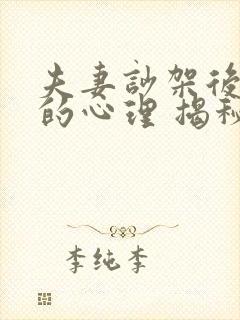 夫妻訃架後
的心理 揭秘
李纯李